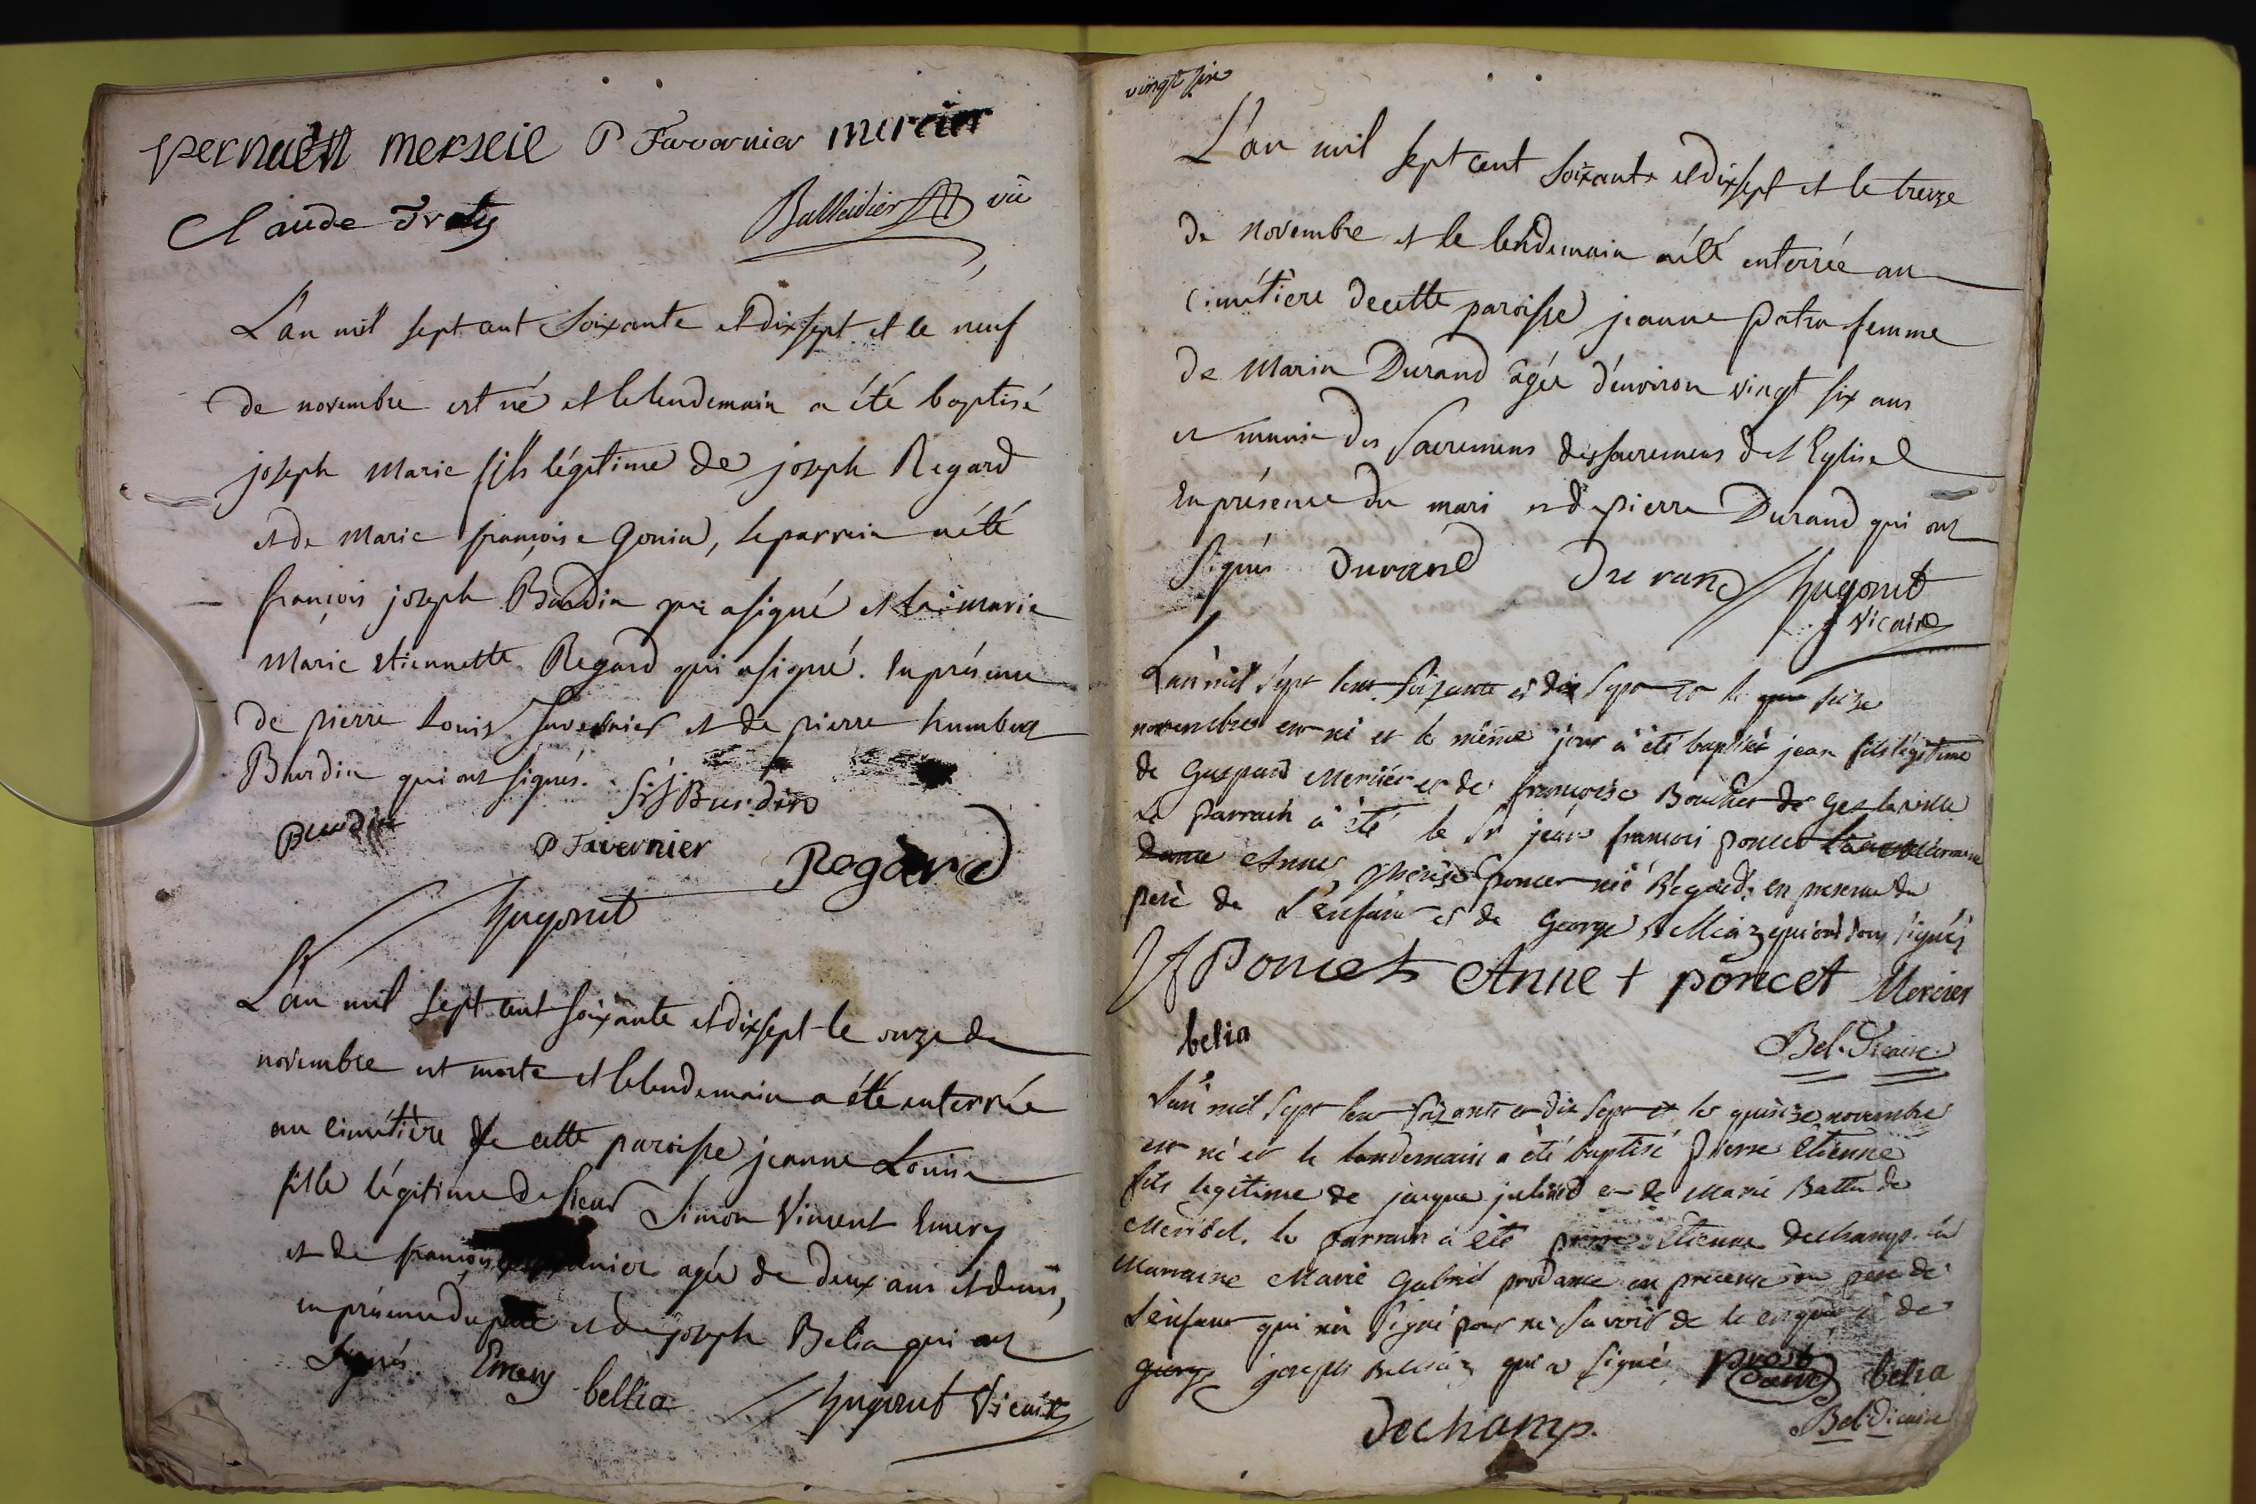 merseil P Favernier mercier
Claude
Balleidier vic
L'an mil sept cent soixante et dix sept et le neuf
de novembre est né et le lendemain a été baptisé
joseph Marie fils légitime de joseph Regard
et de Marie françoise Gonin, le parrein a été
françois joseph Burdin qui a signé et la marine
Marie Etiennette Regard qui a signé. En présence
de pierre Louis Favernier et de pierre humbert
Burdin qui ont signés. f j Burdin
Burdin P Favernier Regard
hugonet
L'an mil sept cent soixante et dix sept le onze de
novembre est morte et le lendemain a été enterrée
au cimétière de cette paroisse jeanne Louise
fille légitime de sieur Simon Vincent Emery
et de agée de deux ans et demis,
en présence du père et de joseph Belia qui ont
signés. Emery bellia hugonet Vicaire
vingt six
L'an mil sept cent soixante et dix sept et le treize
de novembre et le lendemain a été enterrée au
cimétiere de cette paroisse jeanne femme
de Marin Durand âgée d'environ vingt six ans
et munie des Sacremens des sacremens de l'Eglise
En présence du mari et de pierre Durand qui ont
signés Durand Durand hugonet
vicaire
L'an mil sept cent soixante et dix sept et le seize
novembre est né et le même jour à été baptisé jean fils légitime
de Gaspard Mercier et de françoise Bouchet de Gex la ville
Le Parrain à été le Sr jean françois poncet
Anne poncet née Régard. en presence du
père de L'enfant et de George qui ont tous signés
J f Poncet Anne + poncet Mercier
belia Bel. Vicaire.
L'an mil sept cent soixante et dix sept et le quinze novembre
est né et le landemain a été baptisé Pierre Etienne
fils legitime de jacque et de Marie de
le parrain à été pierre Etienne dechamp. la
Marraine Marie Gabriel en presence du père de
L'enfant qui n'a signé pour ne savoir de le enquis et de
joseph qui a signé belia
dechamp. Bel. Vicaire